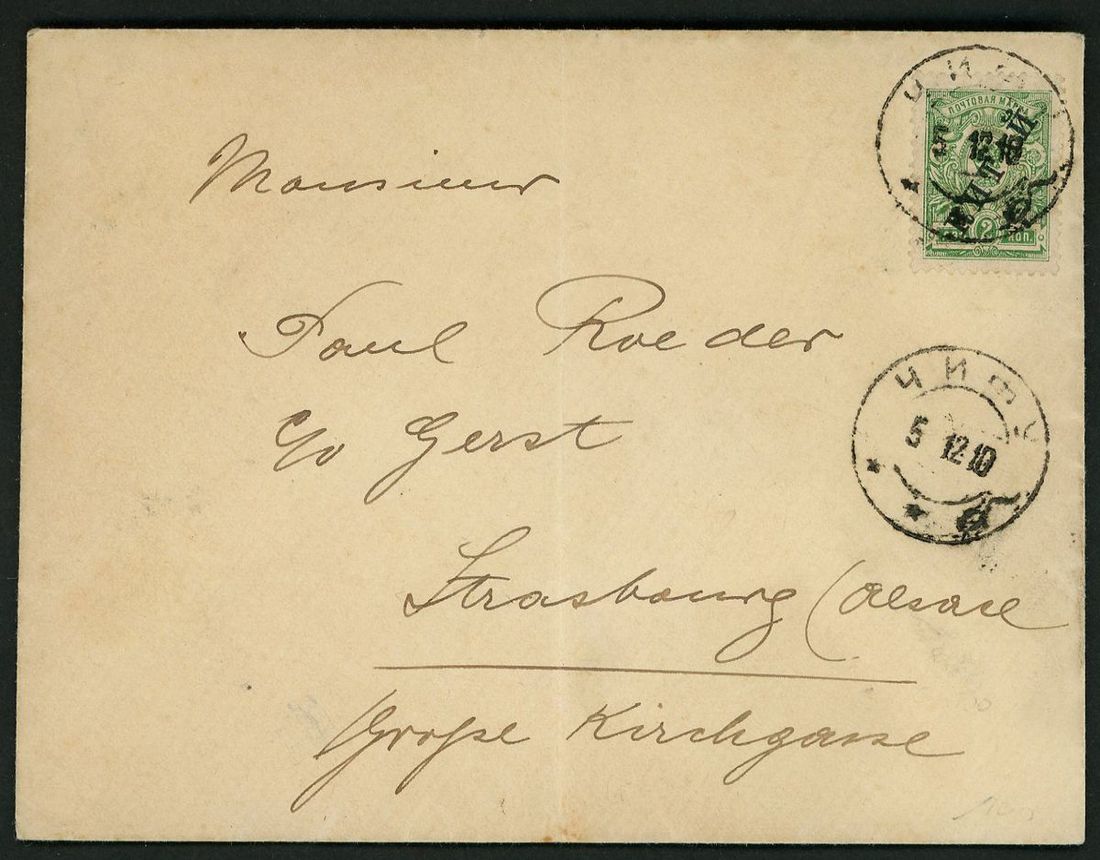 ПОЧТОВАЯ МАРКА
КИТАЙ
2 КОП.
5 12 10
Monsieur
Paul Roeder
c/o Gerst
Strasbourg (Alsace
Große Kirchgasse
ЧИФУ
5 12 10
б